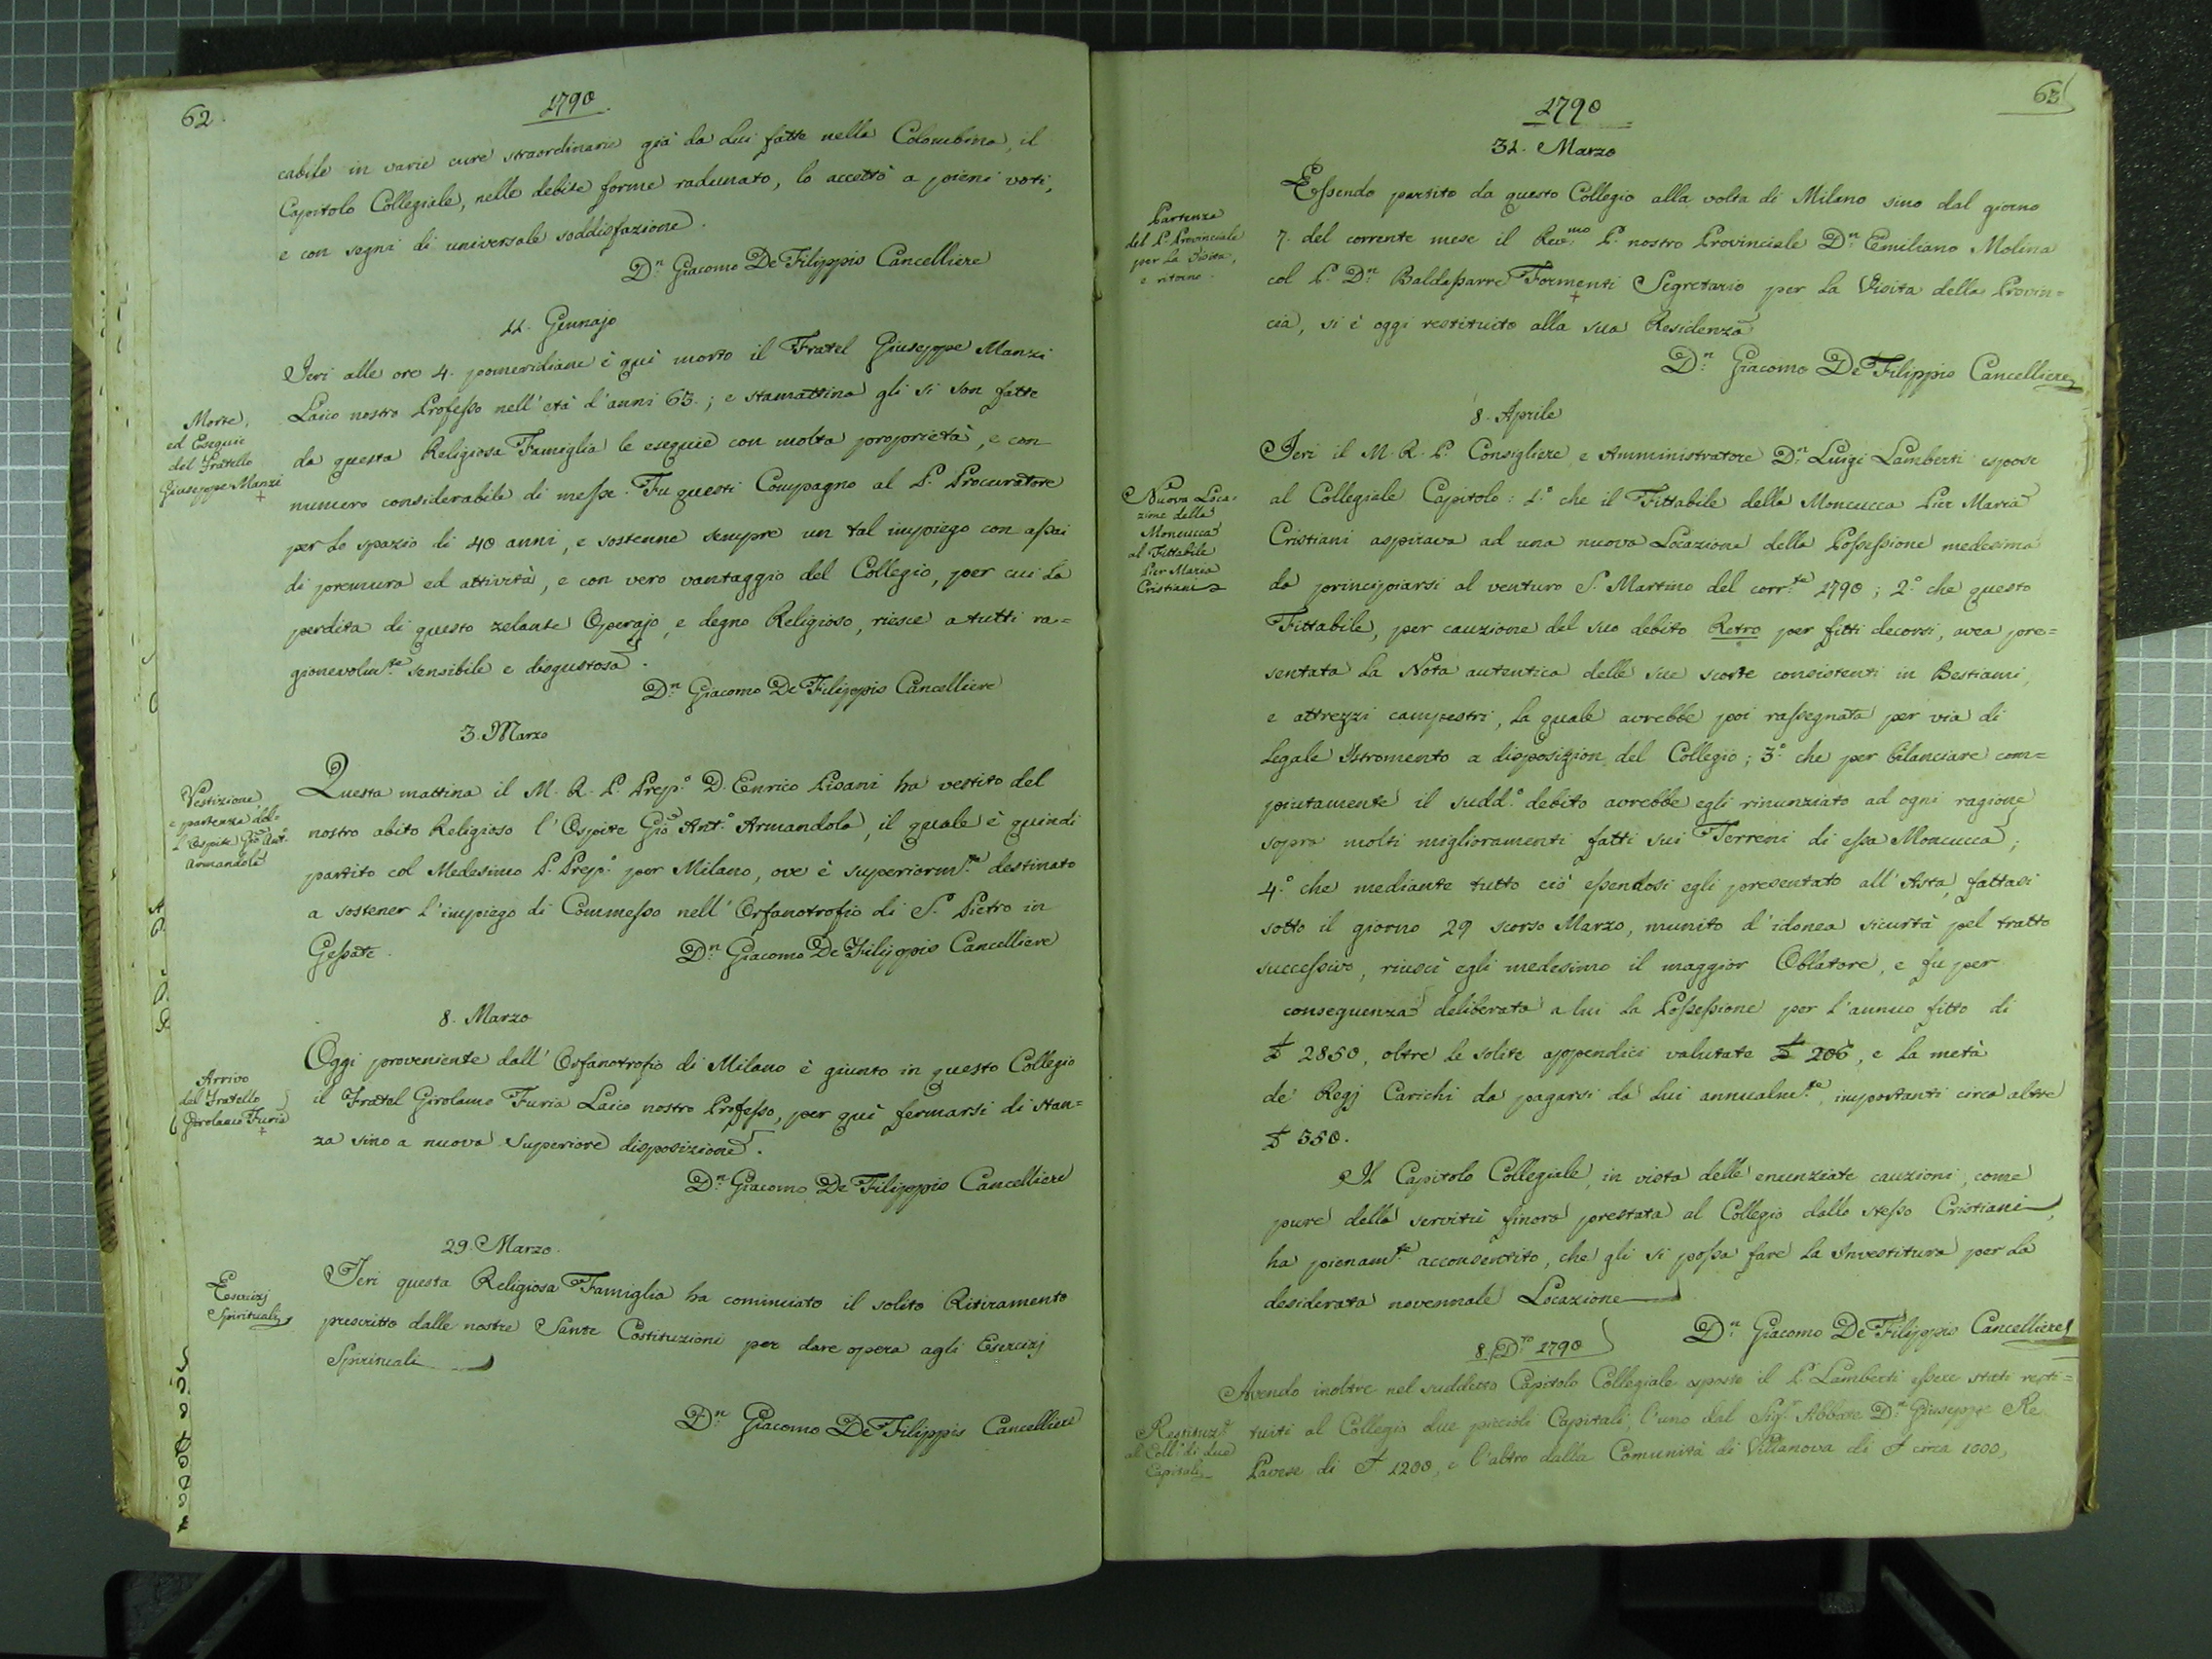 62
1790
cabile in varie cure straordinarie già da Lui fatte nella Colombina, il
Capitolo Collegiale, nelle debite forme radunato, lo accettò a pieni voti,
e con segni di universale soddisfazione.
Dn. Giacomo De Filippis Cancelliere
11. Gennajo
Morte,
ed Esequie
del Fratello
Giuseppe Manzi
+
Jeri alle ore 4. pomeridiane è quì morto il Fratel Giuseppe Manzi
Laico nostro Professo nell'età d'anni 63.; e stamattina gli si son fatte
da questa Religiosa Famiglia le esequie con molta proprietà, e con
numero considerabile di messe. Fu questi Compagno al P. Procuratore
per lo spazio di 40 anni, e sostenne sempre un tal impiego con assai
di premura ed attività, e con vero vantaggio del Collegio, per cui la
perdita di questo zelante Operajo, e degno Religioso, riesce a tutti ra=
gionevolm.te sensibile e disgustosa.
Dn. Giacomo De Filippis Cancelliere
3. Marzo
Vestizione,
e partenza del=
l'Ospite Gio. Ant.
Armandola
Questa mattina il M. R. P. Prep.o D. Enrico Pisani ha vestito del
nostro abito Religioso l'Ospite Gio. Ant.o Armandola, il quale è quindi
partito col Medesimo P. Prep.o per Milano, ove è superiorm.te destinato
a sostener l'impiego di Commesso nell'Orfanotrofio di S. Pietro in
Gessate.
Dn. Giacomo De Filippis Cancelliere
8. Marzo
Arrivo
del Fratello
Girolamo Furia
+
Oggi proveniente dall'Orfanotrofio di Milano è giunto in questo Collegio
il Fratel Girolamo Furia Laico nostro Professo, per quì fermarsi di stan=
za sino a nuova Superiore disposizione.
Dn. Giacomo De Filippis Cancelliere
29. Marzo.
Esercizj
Spirituali
Jeri questa Religiosa Famiglia ha cominciato il solito Ritiramento
prescritto dalle nostre Sante Costituzioni per dare opera agli Esercizj
Spirituali
Dn. Giacomo De Filippis Cancelliere
63
1790
31. Marzo
Partenza
del P. Provinciale
per la Visita,
e ritorno.
Essendo partito da questo Collegio alla volta di Milano sino dal giorno
7. del corrente mese il Rev.mo P. nostro Provinciale Dn. Emiliano Molina
col P. Dn. Baldassarre Formenti Segretario per la Visita della Provin=
+
cia, si è oggi restituito alla sua Residenza
Dn. Giacomo De Filippis Cancelliere
8. Aprile
Nuova Loca=
zione della
Moncucca
al Fittabile
Pier Maria
Cristiani
Jeri il M. R. P. Consigliere e Amministratore Dn. Luigi Lamberti espose
al Collegiale Capitolo: 1.o che il Fittabile della Moncucca Pier Maria
Cristiani aspirava ad una nuova Locazione della Possessione medesima
da principiarsi al venturo S. Martino del corr.te 1790; 2.o che questo
Fittabile, per cauzione del suo debito Retro per fitti decorsi, avea pre=
sentata la Nota autentica delle sue scorte consistenti in Bestiami,
e attrezzi campestri, la quale avrebbe poi rassegnata per via di
legale Istromento a disposizion del Collegio; 3.o che per bilanciare com=
piutamente il sudd.o debito avrebbe egli rinunziato ad ogni ragione
sopra molti miglioramenti fatti sui Terreni di essa Moncucca;
4.o che mediante tutto ciò essendosi egli presentato all'Asta, fattasi
sotto il giorno 29 scorso Marzo, munito d'idonea sicurtà pel tratto
successivo, riuscì egli medesimo il maggior Oblatore, e fu per
conseguenza deliberata a lui la Possessione per l'annuo fitto di
£ 2850, oltre le solite appendici valutate £ 206, e la metà
de' Regj Carichi da pagarsi da Lui annualm.te, importanti circa altre
£ 350.
Il Capitolo Collegiale, in vista delle enunziate cauzioni, come
pure della servitù finora prestata al Collegio dallo stesso Cristiani,
ha pienam.te acconsentito, che gli si possa fare la Investitura per la
desiderata novennale Locazione
Dn. Giacomo De Filippis Cancelliere
8. D.to 1790
Restituz.e
al Coll.o di due
Capitali
Avendo inoltre nel suddetto Capitolo Collegiale esposto il P. Lamberti essere stati resti=
tuiti al Collegio due piccioli Capitali, l'uno dal Sig.r Abbate Dn. Giuseppe Re
Pavese di £ 1200, e l'altro dalla Comunità di Villanova di £ circa 1000,